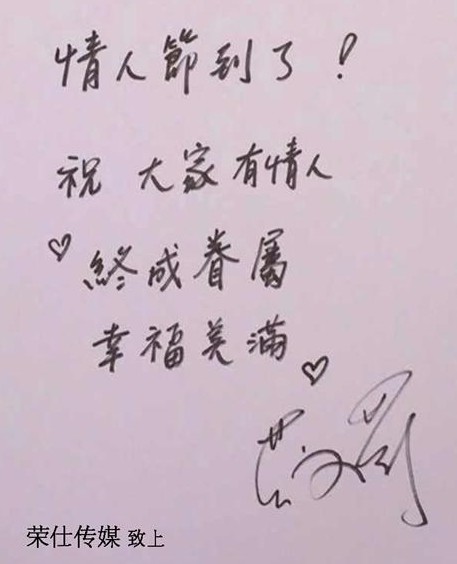 情人節到了！
祝 大家有情人
♡ 終成眷屬
幸福美滿 ♡
荣仕传媒 致上